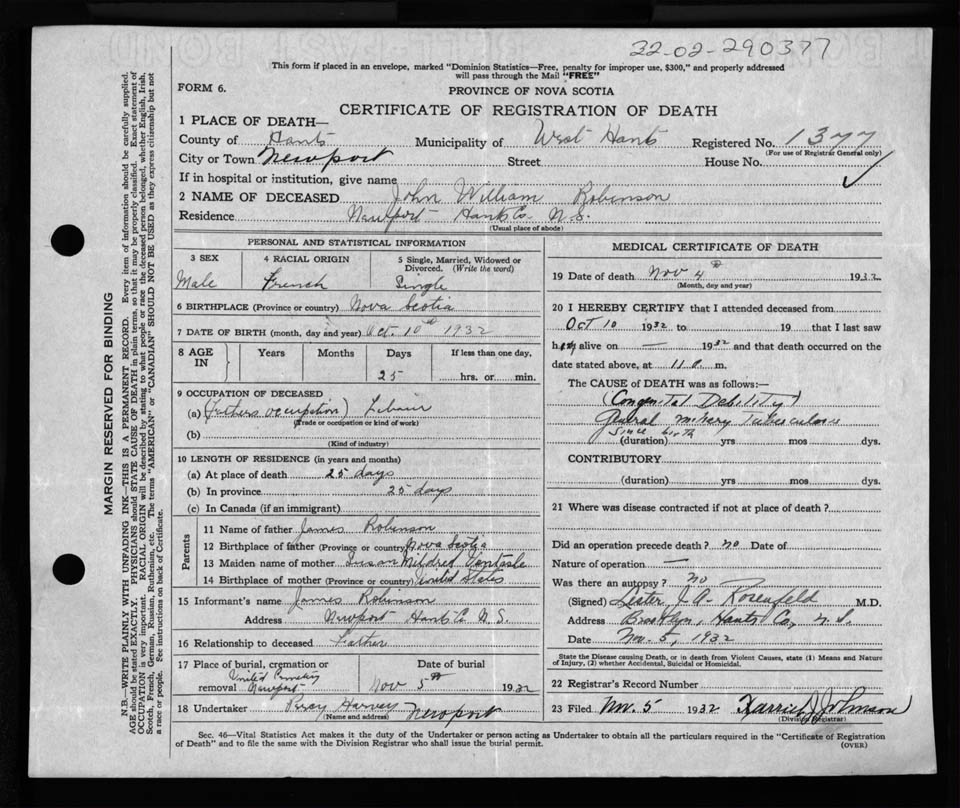 32-02-290377
This form if placed in an envelope, marked "Dominion Statistics—Free, penalty for improper use, $300," and properly addressed
will pass through the Mail "FREE"
FORM 6.
PROVINCE OF NOVA SCOTIA
CERTIFICATE OF REGISTRATION OF DEATH
1 PLACE OF DEATH—
County of Hants Municipality of West Hants Registered No. 1377
(For use of Registrar General only)
City or Town Newport Street House No.
If in hospital or institution, give name
2 NAME OF DECEASED John William Robinson
Residence Newport Hants Co. N.S.
(Usual place of abode)
PERSONAL AND STATISTICAL INFORMATION
3 SEX
Male
4 RACIAL ORIGIN
French
5 Single, Married, Widowed or
Divorced. (Write the word)
Single
6 BIRTHPLACE (Province or country) Nova Scotia
7 DATE OF BIRTH (month, day and year) Oct. 10th 1932
8 AGE IN
Years
Months
Days
25
If less than one day,
hrs. or min.
9 OCCUPATION OF DECEASED
(a) (Fathers occupation)
(Trade or occupation or kind of work)
(b)
(Kind of industry)
10 LENGTH OF RESIDENCE (in years and months)
(a) At place of death 25 days
(b) In province 25 days
(c) In Canada (if an immigrant)
Parents
11 Name of father James Robinson
12 Birthplace of father (Province or country) Nova Scotia
13 Maiden name of mother Susan Mildred
14 Birthplace of mother (Province or country) United States
15 Informant's name James Robinson
Address Newport Hants Co N.S.
16 Relationship to deceased Father
17 Place of burial, cremation or
removal United Cemetery
Newport
Date of burial
Nov 5th 1932
18 Undertaker Percy Harvey Newport
(Name and address)
MEDICAL CERTIFICATE OF DEATH
19 Date of death Nov 4th 1932
(Month, day and year)
20 I HEREBY CERTIFY that I attended deceased from
Oct 10 1932 to 19 that I last saw
h alive on — 1932 and that death occurred on the
date stated above, at 11 m.
The CAUSE of DEATH was as follows:—
(Congenital Debility)
General miliary Tuberculosis
Since birth
(duration) yrs mos dys.
CONTRIBUTORY
(duration) yrs mos dys.
21 Where was disease contracted if not at place of death?
Did an operation precede death? no Date of
Nature of operation —
Was there an autopsy? no
(Signed) Lester J. A. Rosenfeld M.D.
Address Brooklyn, Hants Co, N.S.
Date Nov. 5, 1932
State the Disease causing Death, or in death from Violent Causes, state (1) Means and Nature
of Injury, (2) whether Accidental, Suicidal or Homicidal.
22 Registrar's Record Number
23 Filed Nov. 5 1932 Harriet J Johnson
(Division Registrar)
Sec. 46—Vital Statistics Act makes it the duty of the Undertaker or person acting as Undertaker to obtain all the particulars required in the "Certificate of Registration
of Death" and to file the same with the Division Registrar who shall issue the burial permit.
(OVER)
MARGIN RESERVED FOR BINDING
N.B.—WRITE PLAINLY WITH UNFADING INK—THIS IS A PERMANENT RECORD. Every item of information should be carefully supplied.
AGE should be stated EXACTLY. PHYSICIANS should STATE CAUSE OF DEATH in plain terms, so that it may be properly classified. Exact statement of
OCCUPATION is very important. RACIAL ORIGIN will be described by stating to what people or race the deceased person belonged, whether English, Irish,
Scotch, French, German, Russian, Ruthenian, etc. The terms "AMERICAN" or "CANADIAN" SHOULD NOT BE USED as they express citizenship but not
a race or people. See instructions on back of Certificate.